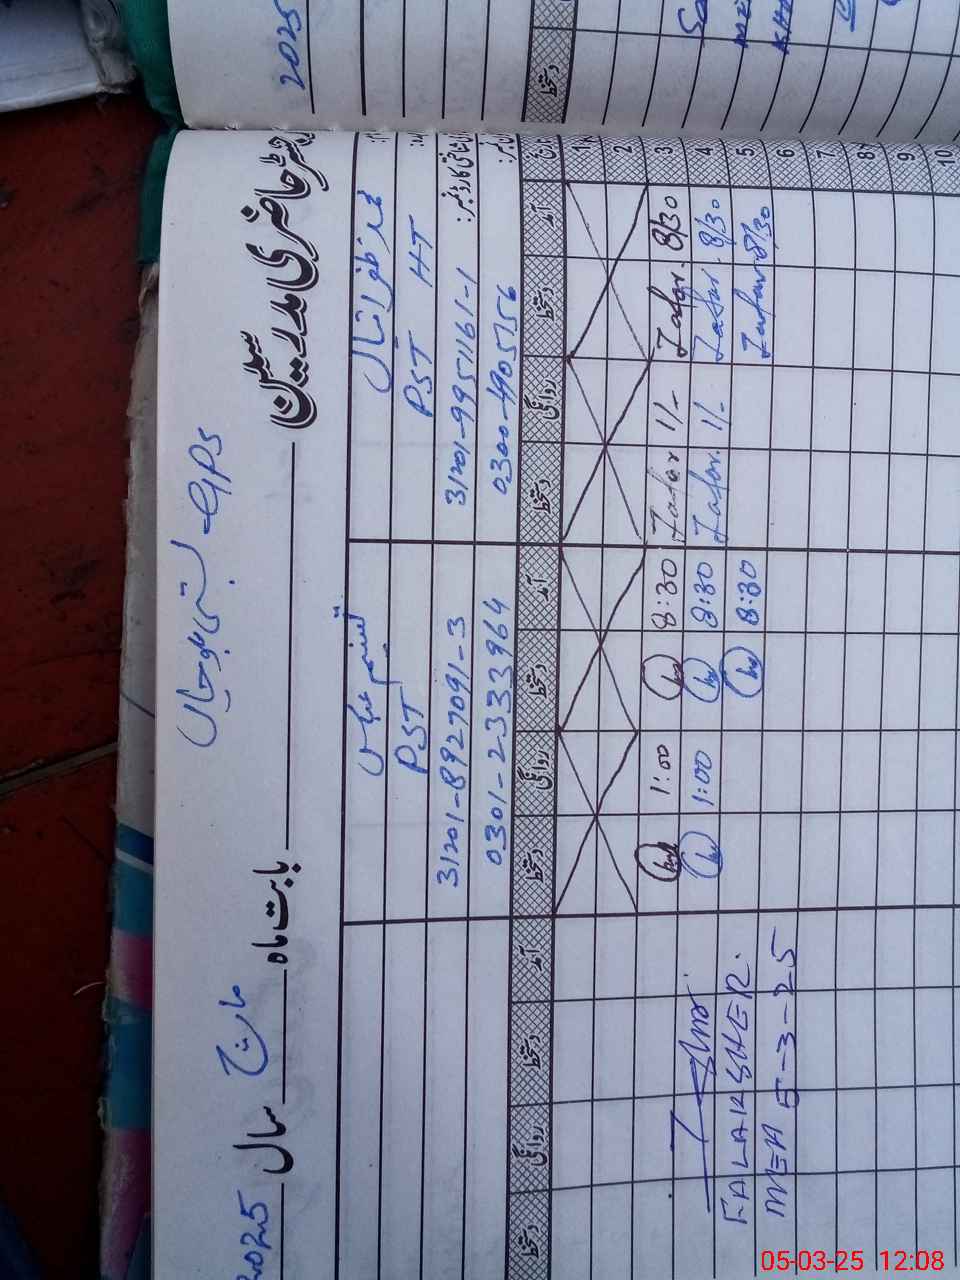 GPS بستی بلوچاں
رجسٹر حاضری مدرسین
بابت ماہ مارچ سال 2025
محمد ظفر اقبال
PST HT
31201-9951161-1
0300-4905756
تسنیم عباس
PST
31201-8927091-3
0301-2333964
تاریخ آمد دستخط روانگی دستخط آمد دستخط روانگی دستخط آمد دستخط روانگی دستخط
1
2
3 8/30 Zafar 1/- Zafar 8:30 1:00
4 8/30 Zafar 1/- Zafar 8:30 1:00
5 8/30 Zafar 8:30
6
7
8
9
10
FALAKSHER
MEA 5-3-25
2025
دستخط
دستخط
05-03-25 12:08